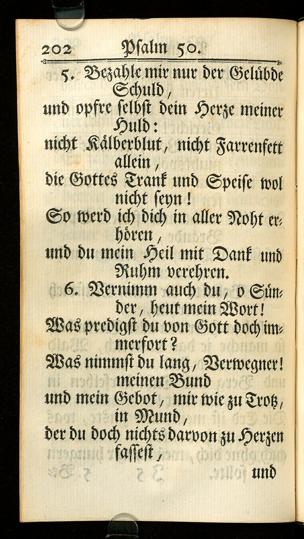 202 Psalm 50.
5. Bezahle mir nur der Gelübde
Schuld,
und opfre selbst dein Herze meiner
Huld:
nicht Kälberblut, nicht Farrenfett
allein,
die Gottes Trank und Speise wol
nicht seyn!
So werd ich dich in aller Noht er-
hören,
und du mein Heil mit Dank und
Ruhm verehren.
6. Vernimm auch du, o Sün-
der, heut mein Wort!
Was predigst du von Gott doch im-
merfort?
Was nimmst du lang, Verwegner!
meinen Bund
und mein Gebot, mir wie zu Trotz,
in Mund,
der du doch nichts darvon zu Herzen
fassest,
und